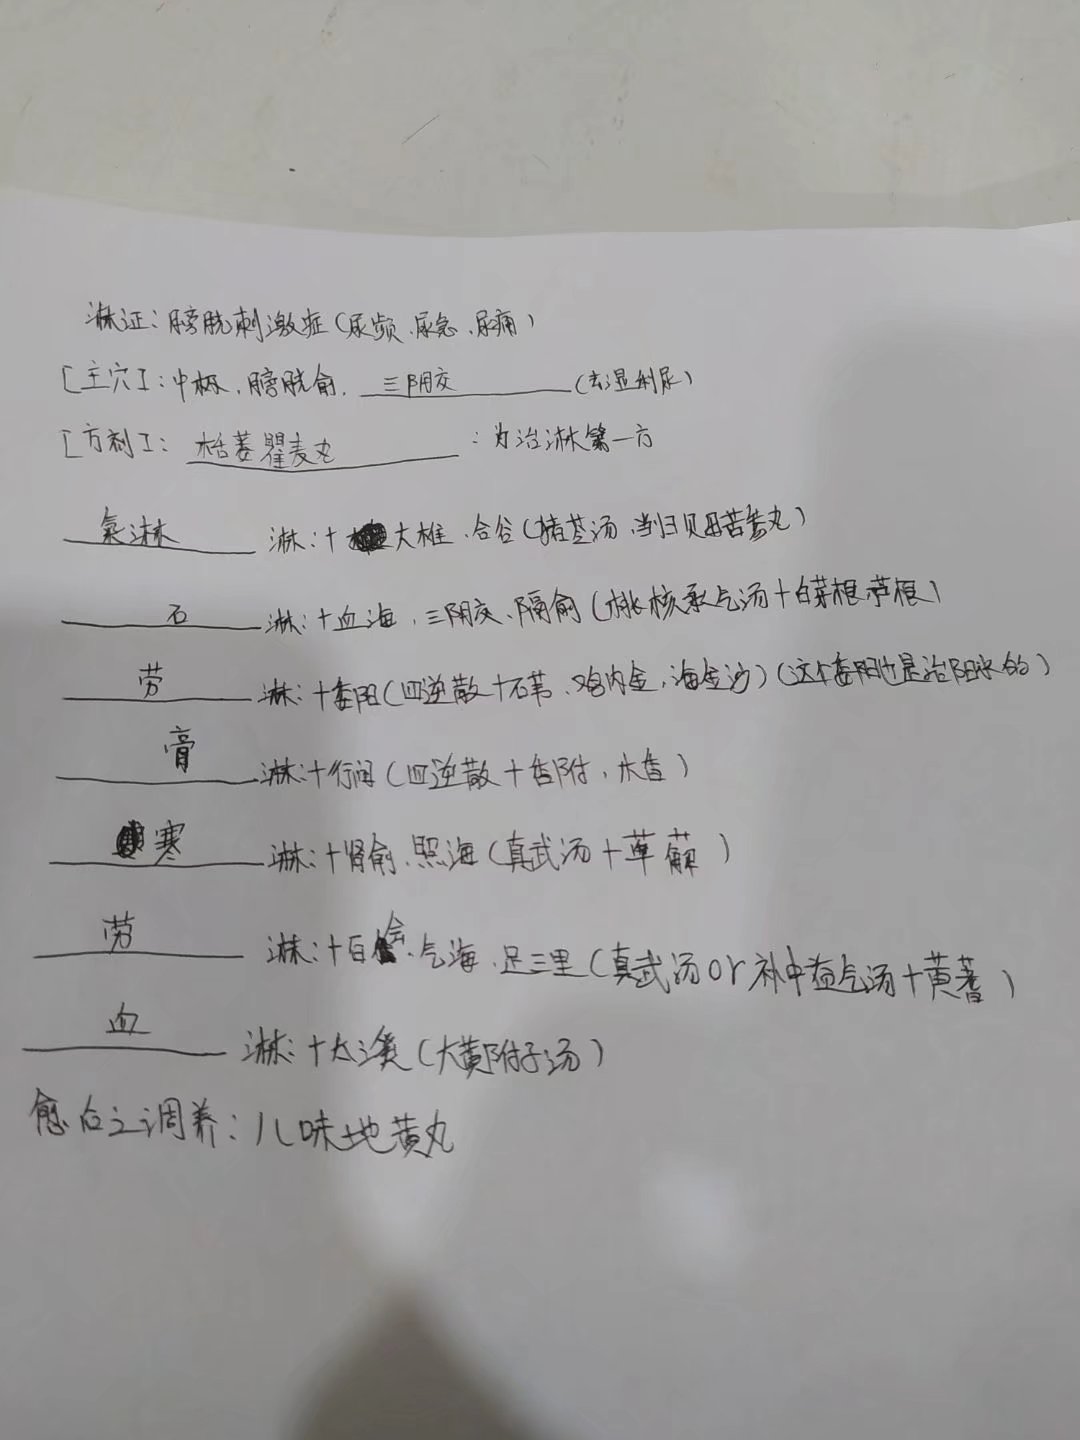 淋证：膀胱刺激症（尿频、尿急、尿痛）
[主穴]：中极、膀胱俞、三阴交（去湿利尿）
[方剂]：栝蒌瞿麦丸：为治淋第一方
氣淋 淋：十大椎、合谷（猪苓汤、当归贝母苦参丸）
石 淋：十血海、三阴交、隔俞（桃核承气汤十白茅根、芦根）
劳 淋：十委阳（四逆散十石苇、鸡内金、海金沙）（这个委阳也是治阳水的）
膏 淋：十行间（四逆散十香附、木香）
寒 淋：十肾俞、照海（真武汤十萆薢）
劳 淋：十百会、气海、足三里（真武汤or补中益气汤十黄蓍）
血 淋：十太溪（大黄附子汤）
愈后之调养：八味地黄丸